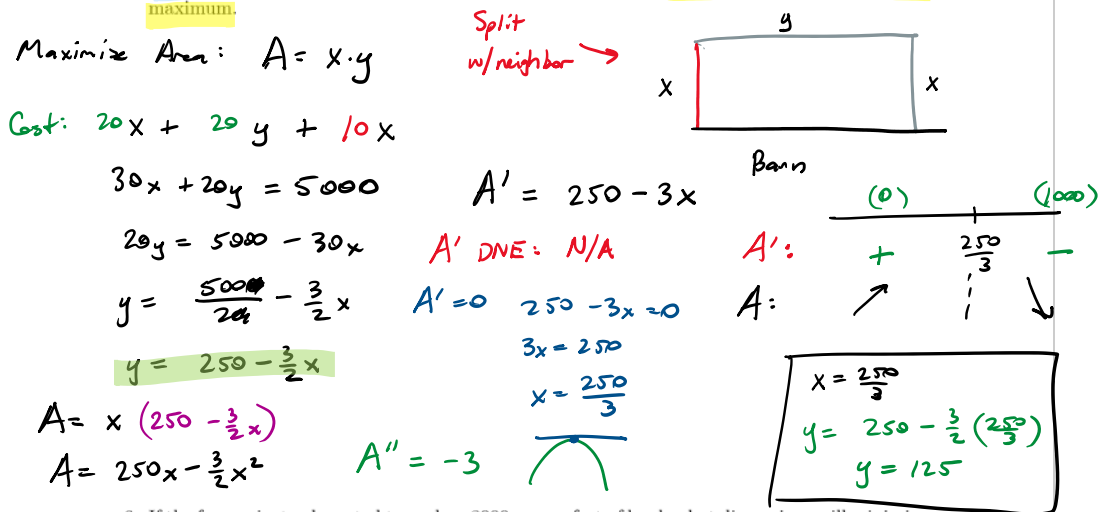 maximum.
Maximize Area: A = x·y
Split
w/neighbor
y
x
x
Barn
Cost: 20x + 20y + 10x
30x + 20y = 5000
20y = 5000 - 30x
y = 5000/20 - 3/2 x
y = 250 - 3/2 x
A = x (250 - 3/2 x)
A = 250x - 3/2 x²
A' = 250 - 3x
A' DNE: N/A
A' = 0 250 - 3x = 0
3x = 250
x = 250/3
A'' = -3
(0) (1000)
A': + 250/3 -
A:
x = 250/3
y = 250 - 3/2 (250/3)
y = 125